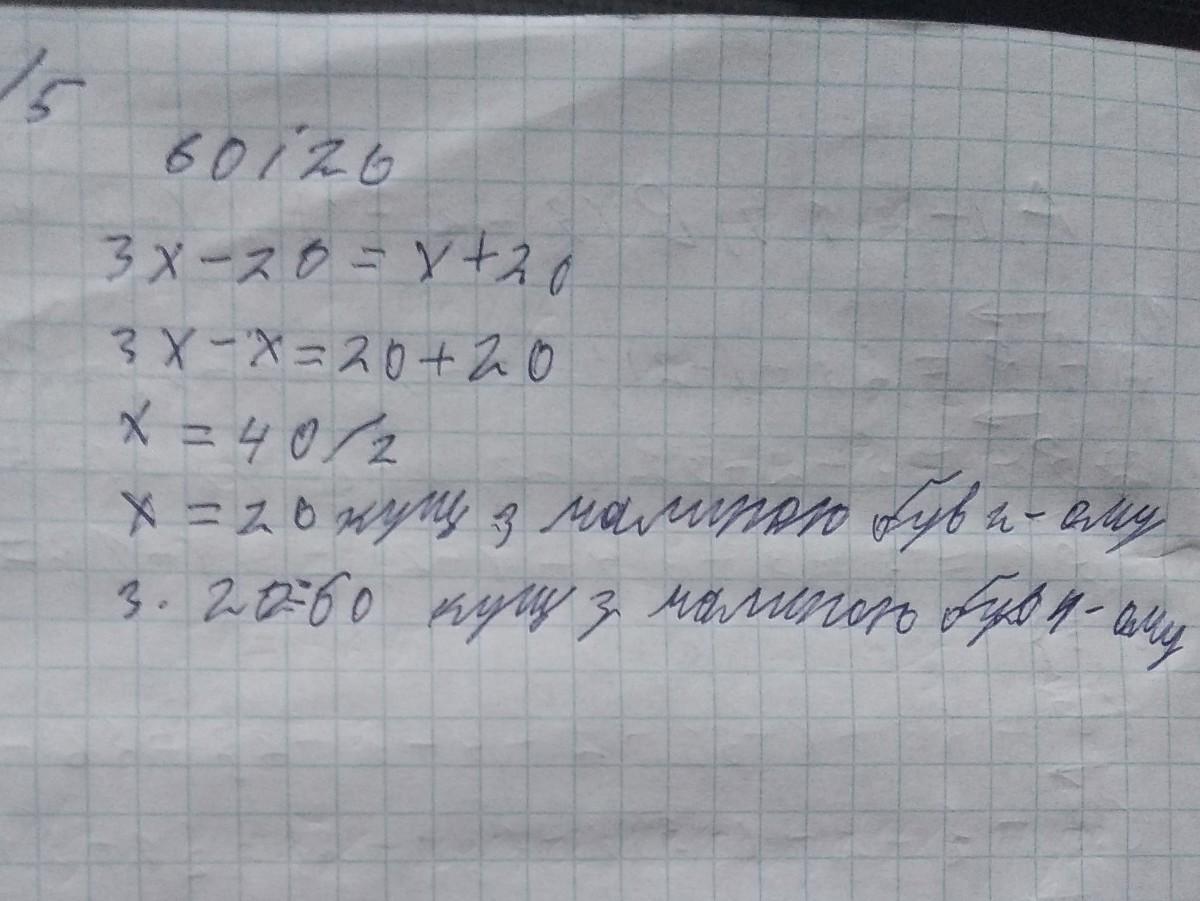 /5
60 і 20
3x - 20 = x + 20
3x - x = 20 + 20
x = 40/2
x = 20 кущ з малиною був н-ому
3 · 20 = 60 кущ з малиною був н-ому